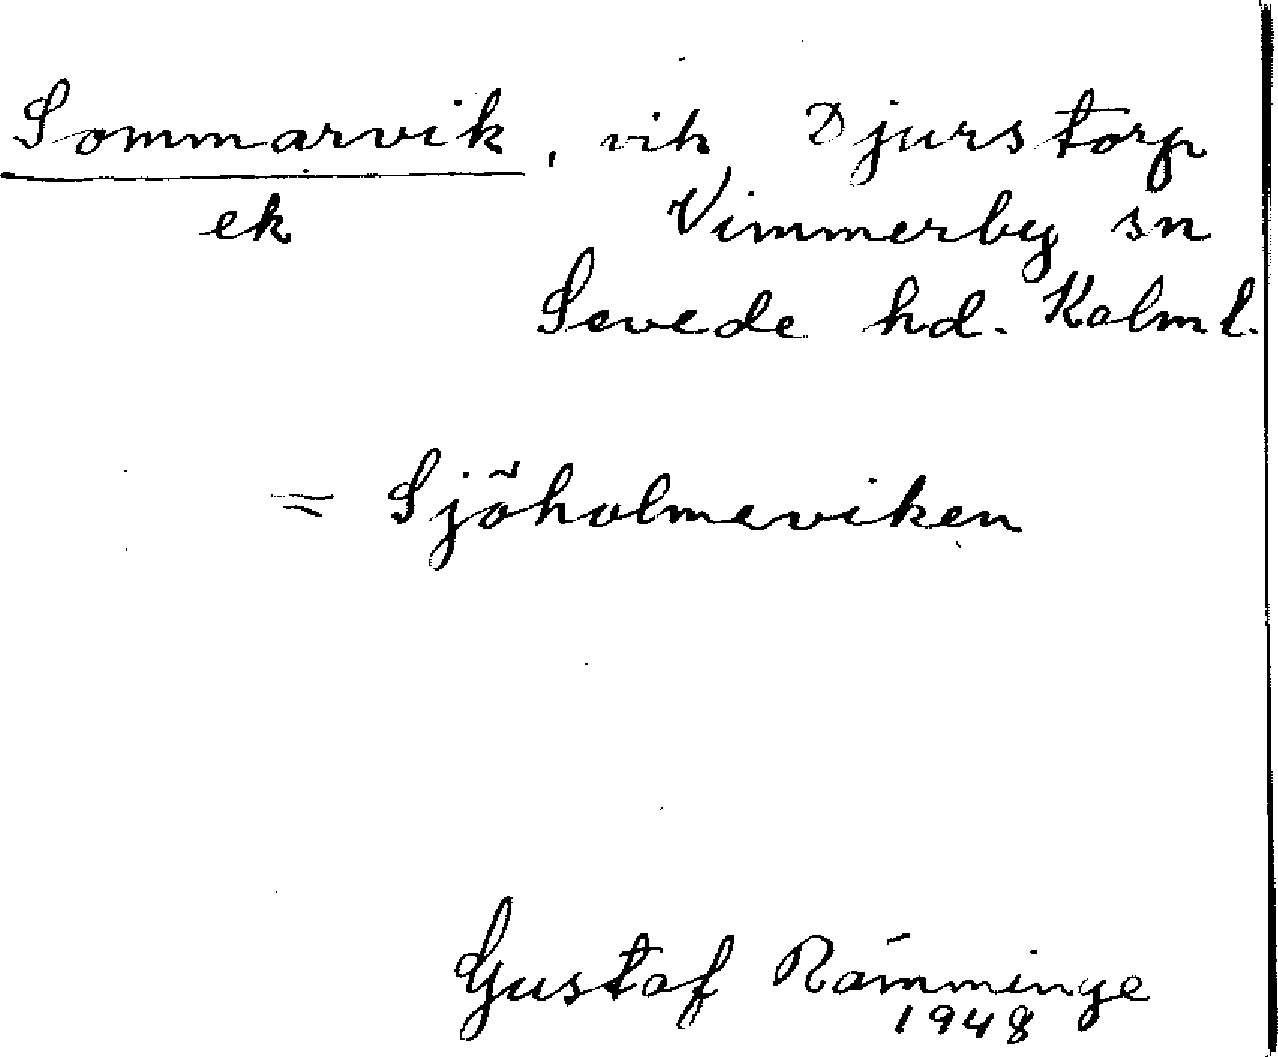 Sommarvik, vik Djurstorp
ek Vimmerby sn
Sevede hd. Kalm l.
= Sjöholmeviken
Gustaf Rämminge
1948